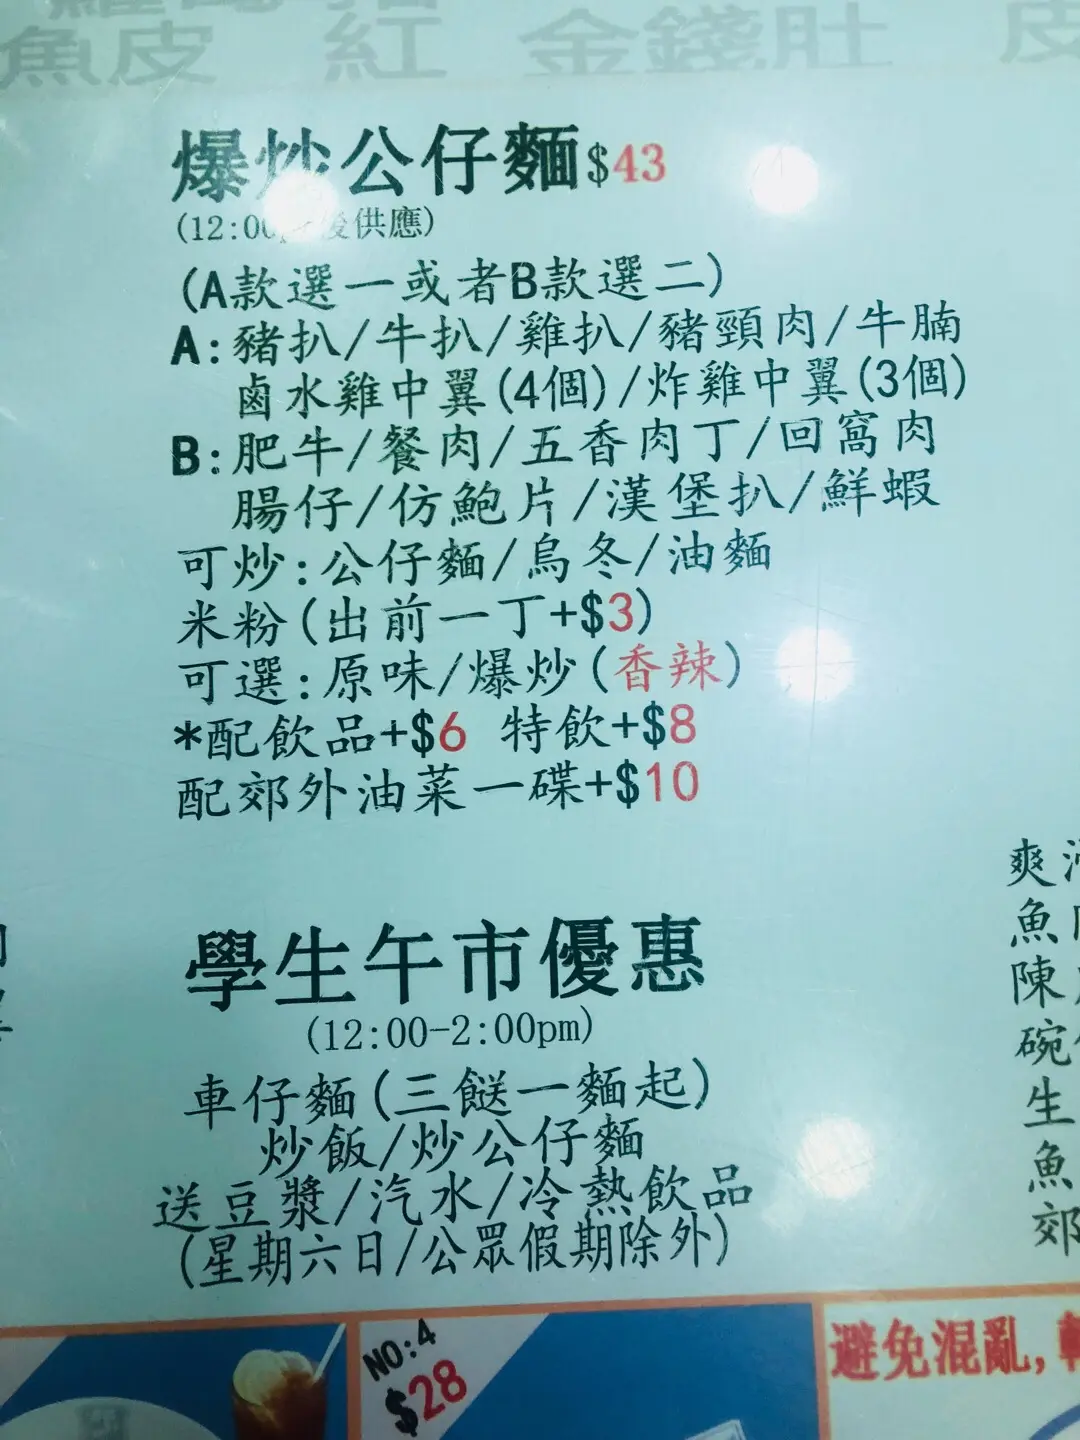 魚皮 紅 金錢肚 皮
爆炒公仔麵$43
(12:00 後供應)
(A款選一或者B款選二)
A:豬扒/牛扒/雞扒/豬頸肉/牛腩
鹵水雞中翼(4個)/炸雞中翼(3個)
B:肥牛/餐肉/五香肉丁/回窩肉
腸仔/仿鮑片/漢堡扒/鮮蝦
可炒:公仔麵/烏冬/油麵
米粉(出前一丁+$3)
可選:原味/爆炒(香辣)
*配飲品+$6 特飲+$8
配郊外油菜一碟+$10
學生午市優惠
(12:00-2:00pm)
車仔麵(三餸一麵起)
炒飯/炒公仔麵
送豆漿/汽水/冷熱飲品
(星期六日/公眾假期除外)
爽
魚
陳
碗
生
魚
郊
NO:4
$28
避免混亂,